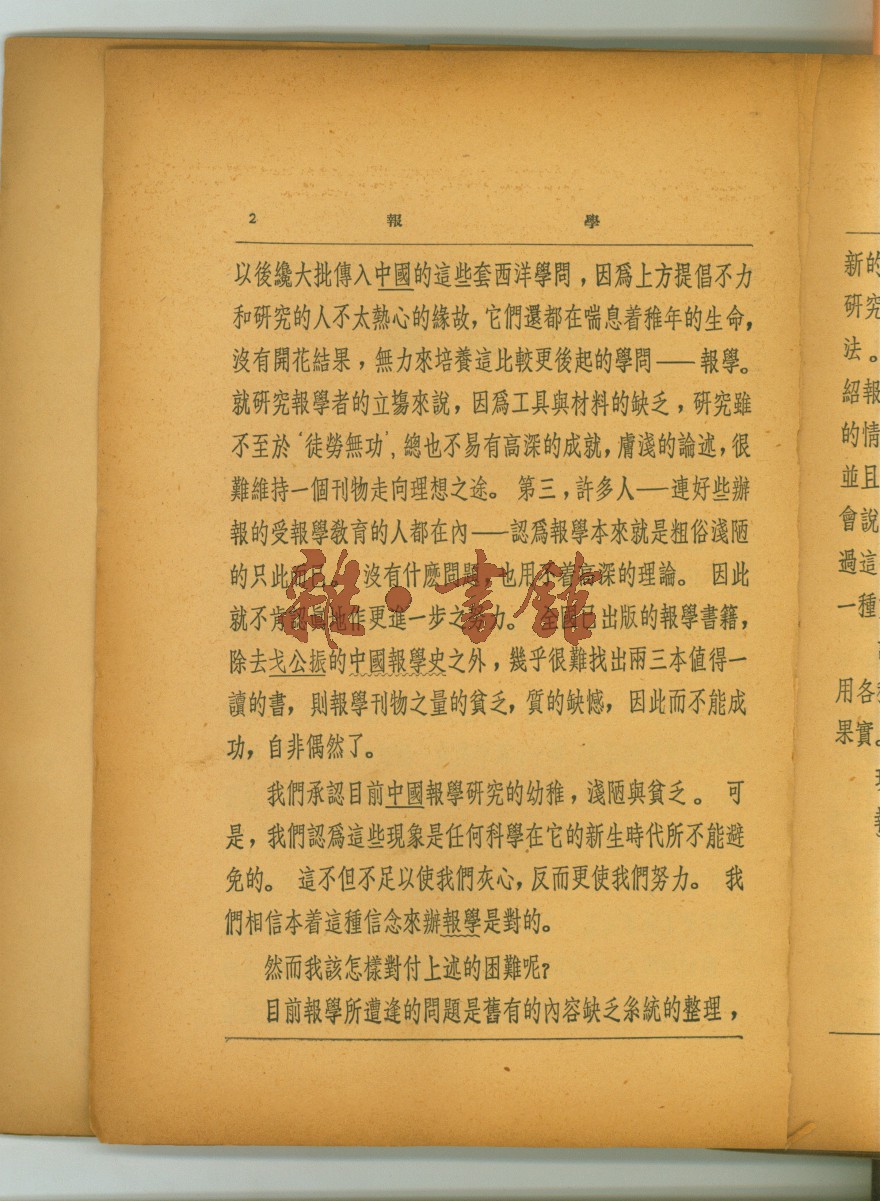 2 報 學
以後纔大批傳入中國的這些套西洋學問，因爲上方提倡不力
和硏究的人不太熱心的緣故，它們還都在喘息着稚年的生命，
沒有開花結果，無力來培養這比較更後起的學問——報學。
就硏究報學者的立塲來說，因爲工具與材料的缺乏，硏究雖
不至於‘徒勞無功’，總也不易有高深的成就，膚淺的論述，很
難維持一個刊物走向理想之途。 第三，許多人——連好些辦
報的受報學敎育的人都在內——認爲報學本來就是粗俗淺陋
的只此而已。 沒有什麽問題，也用不着高深的理論。 因此
就不肯認眞地作更進一步之努力。 全國已出版的報學書籍，
除去戈公振的中國報學史之外，幾乎很難找出兩三本值得一
讀的書，則報學刊物之量的貧乏，質的缺憾，因此而不能成
功，自非偶然了。
我們承認目前中國報學硏究的幼稚，淺陋與貧乏。 可
是，我們認爲這些現象是任何科學在它的新生時代所不能避
免的。 這不但不足以使我們灰心，反而更使我們努力。 我
們相信本着這種信念來辦報學是對的。
然而我該怎樣對付上述的困難呢？
目前報學所遭逢的問題是舊有的內容缺乏系統的整理，
雜·書館
新的
硏究
法。
紹報
的情
並且
會說
過這
一種
用各
果實。